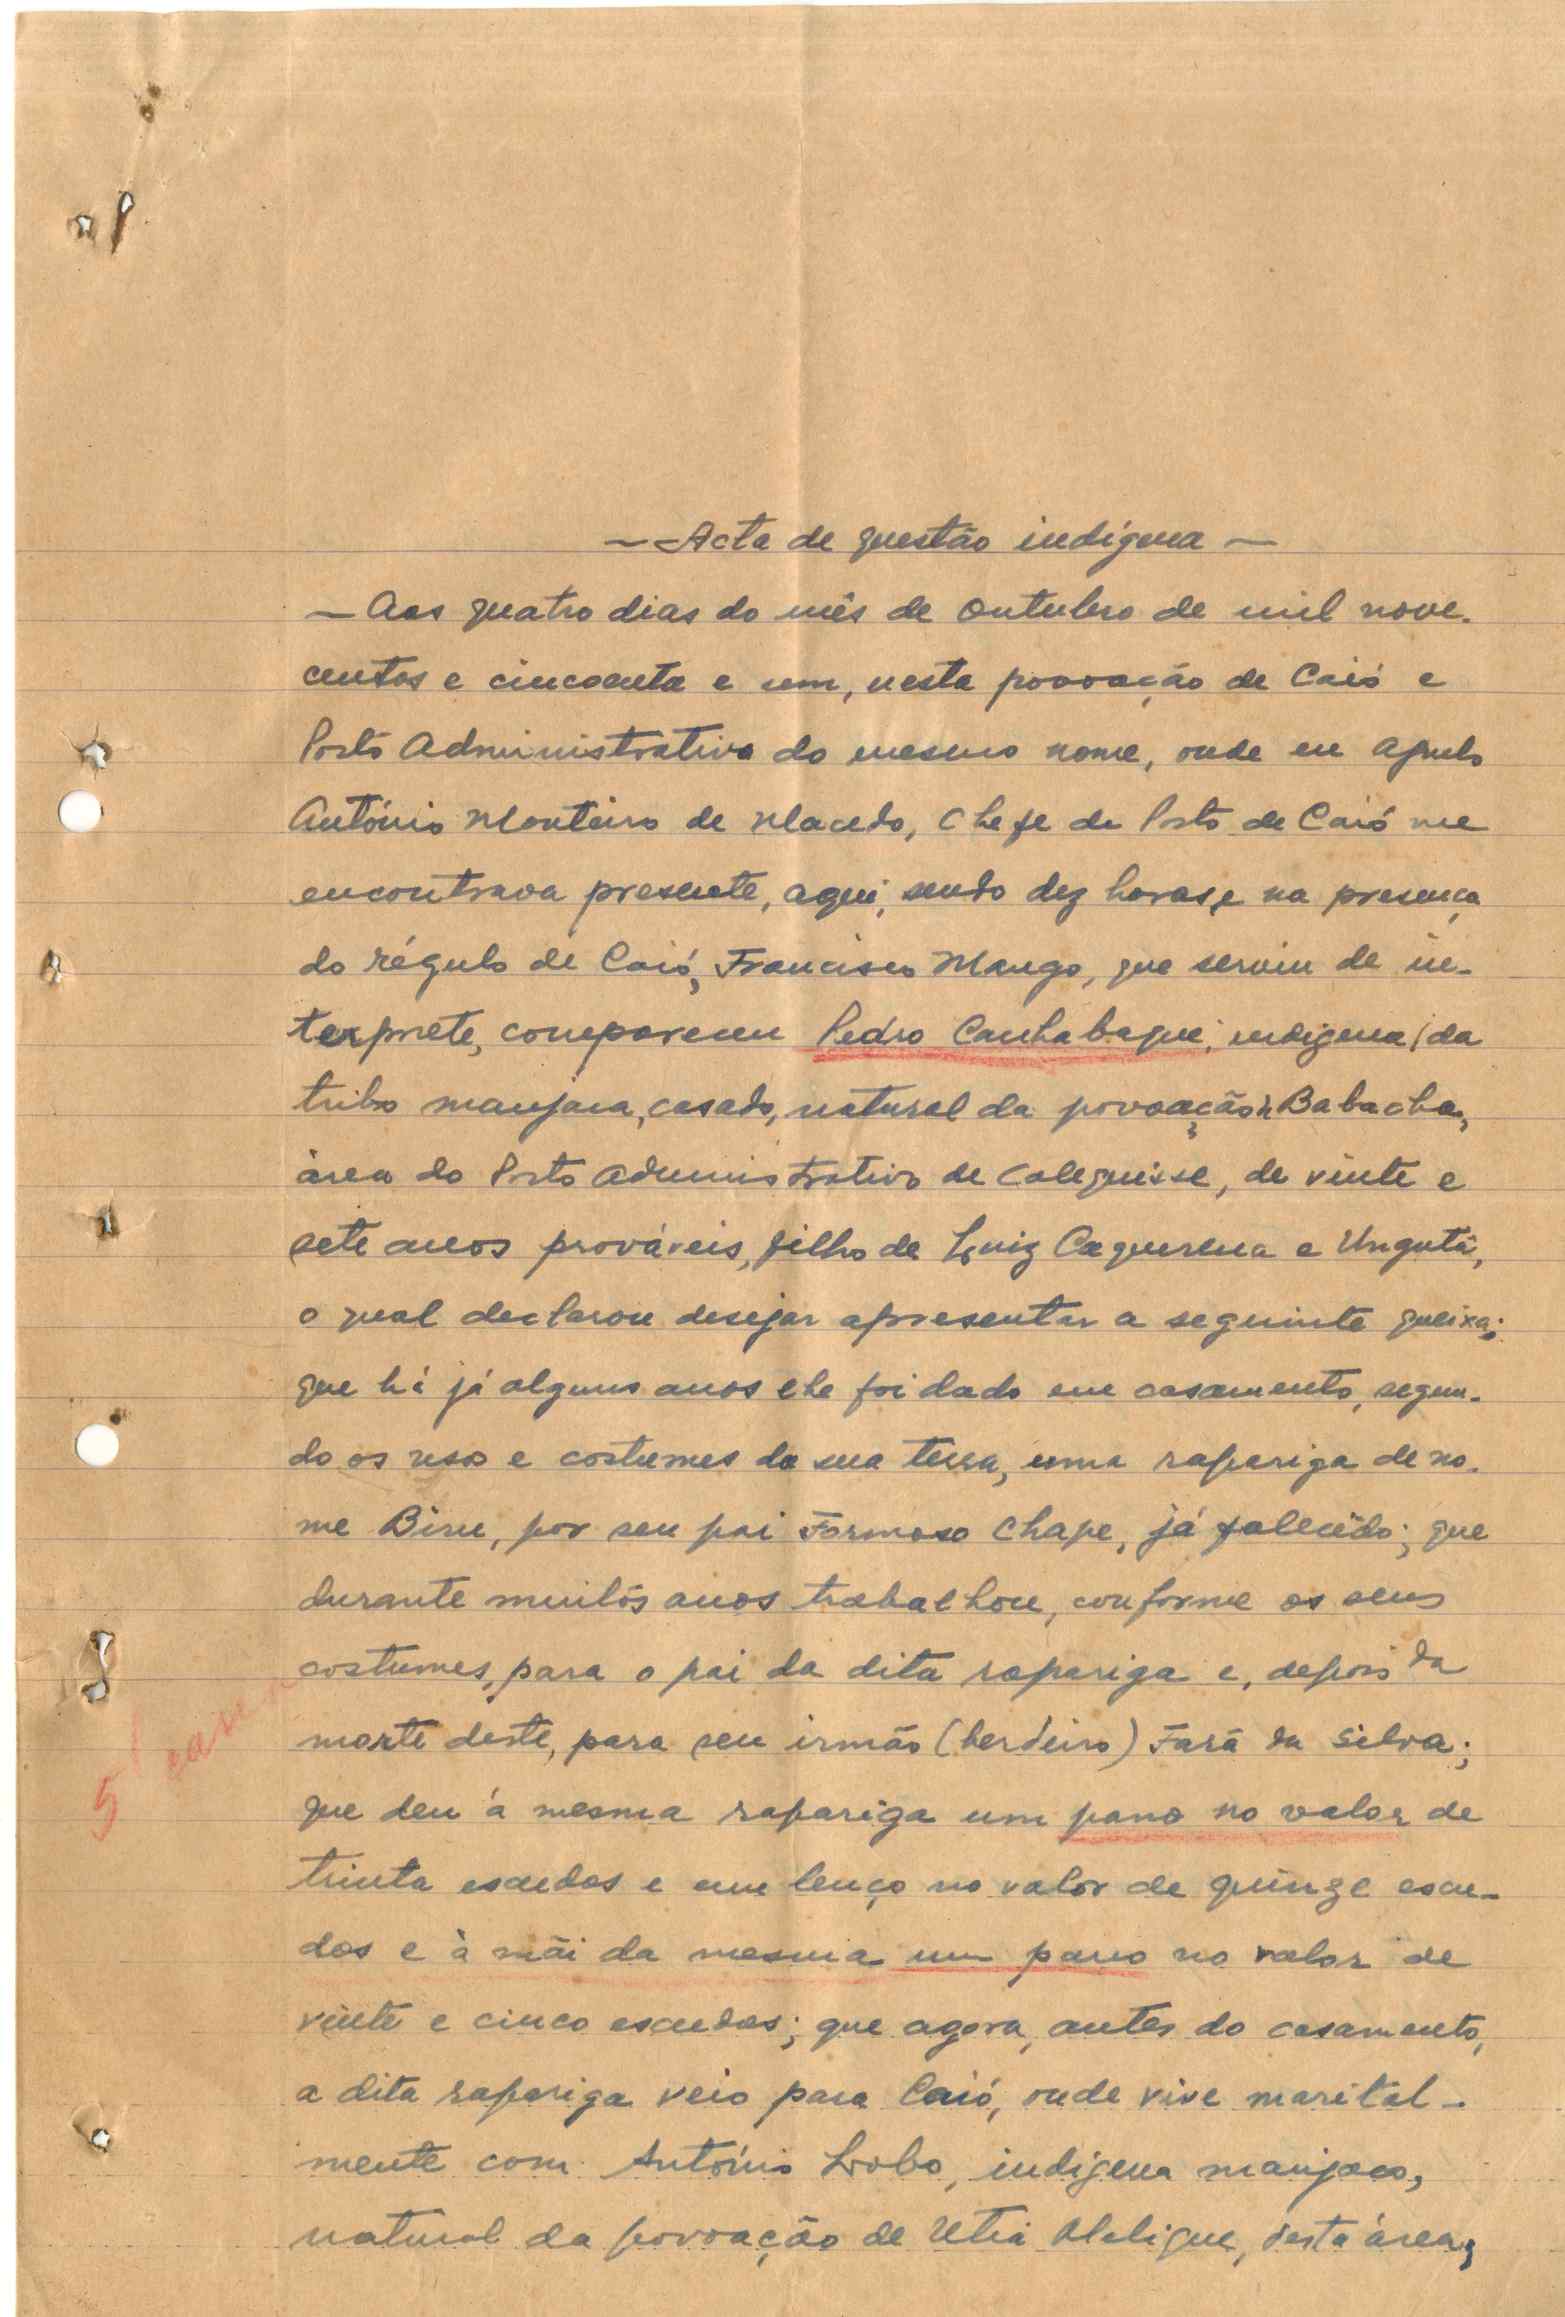 — Acta de questão indígena —
— Aos quatro dias do mês de Outubro de mil nove-
centos e cincoenta e um, nesta povoação de Caió e
Posto Administrativo do mesmo nome, onde eu Apulo
António Monteiro de Macedo, Chefe de Posto de Caió me
encontrava presente, aqui, sendo dez horas, e na presença
do régulo de Caió, Francisco Mango, que serviu de in-
terprete, compareceu Pedro Canhabaque, indigena da
tribo manjaca, casado, natural da povoação de Babacha,
área do Posto Administrativo de Calequisse, de vinte e
sete anos prováveis, filho de Luiz Caquerena e Ungutâ,
o qual declarou desejar apresentar a seguinte queixa:
que há já alguns anos lhe foi dado em casamento, segun-
do os usos e costumes da sua terra, uma rapariga de no-
me Binu, por seu pai Formoso Chape, já falecido; que
durante muitos anos trabalhou, conforme os seus
costumes, para o pai da dita rapariga e, depois da
morte deste, para seu irmão (herdeiro) Fará da Silva;
que deu à mesma rapariga um pano no valor de
trinta escudos e um lenço no valor de quinze escu-
dos e à mãi da mesma um pano no valor de
vinte e cinco escudos; que agora, antes do casamento,
a dita rapariga veio para Caió, onde vive marital-
mente com António Lobo, indígena manjaco,
natural da povoação de Utiá, desta área;
5